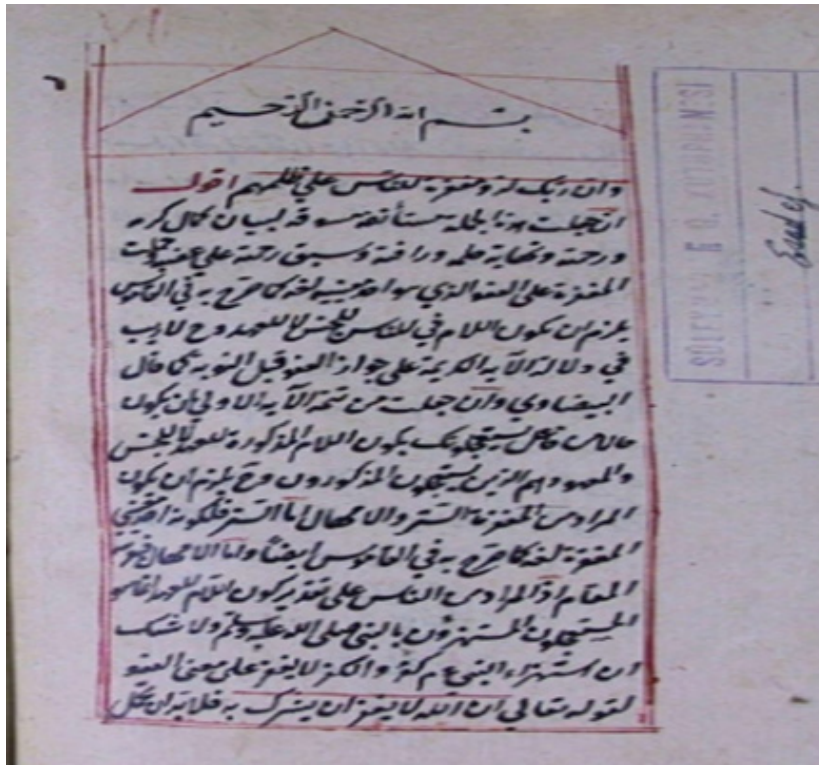 بسم الله الرحمن الرحيم
وان ربك لذو مغفرة للناس على ظلمهم اقول
ان جعلت هذا الجملة مستأنفة مسوقة لبيان كمال كرمه
ورحمته ونهاية حلمه ورأفته وسبق رحمته على غضبه حملت
المغفرة على العفو الذي هو احد معنييه لغة كما صرح به في القاموس
يلزم ان يكون اللام في للناس للجنس لا للعهد وح لا ريب
في دلالة الآية الكريمة على جواز العفو قبل التوبة كما قال
البيضاوي وان جعلت من تتمة الآية الاولى بان يكون
حالا من فاعل يستعجلونك يكون اللام المذكورة للعهد لا للجنس
والمعهود هم الذين يستعجلون المذكورون وح يلزم ان يكون
المراد من المغفرة الستر والامهال اما الستر فلكونه احد معنيي
المغفرة لغة كما صرح به في القاموس ايضا واما الامهال
المقام اذ المراد من الناس على تقدير كون اللام للعهد
المستعجلون المستهزؤن بالنبي صلى الله عليه وسلم ولا شك
ان استهزاء النبي عم كفر والكفر لا يغفر على معنى العفو
لقوله تعالى ان الله لا يغفر ان يشرك به فلا بد ان
SÜLEYMANİYE G. KÜTÜPHANESİ